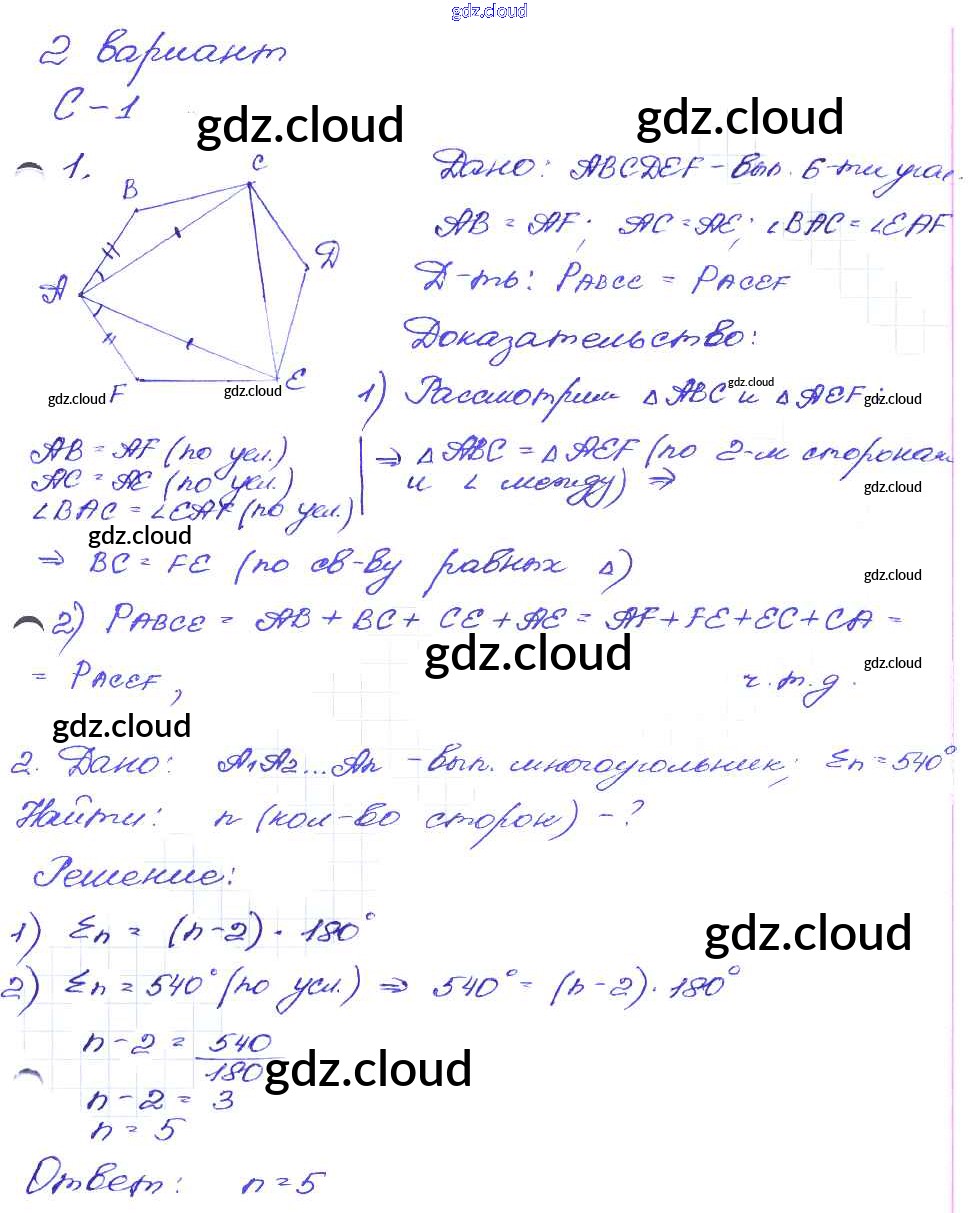 gdz.cloud
2 вариант
С-1
gdz.cloud gdz.cloud
1. Дано: ABCDEF - вып. 6-тиугол.
A B C D E F
AB = AF; AC = AE; ∠BAC = ∠EAF
Д-ть: PABCE = PACEF
Доказательство:
1) Рассмотрим △ABC и △AEF:
gdz.cloud gdz.cloud gdz.cloud gdz.cloud
AB = AF (по усл.)
AC = AE (по усл.)
∠BAC = ∠EAF (по усл.)
⇒ △ABC = △AEF (по 2-м сторонам
и ∠ между) ⇒
gdz.cloud
gdz.cloud
⇒ BC = FE (по св-ву равных △)
gdz.cloud
2) PABCE = AB + BC + CE + AE = AF + FE + EC + CA =
gdz.cloud gdz.cloud
= PACEF, ч.т.д.
gdz.cloud
2. Дано: A1A2...An - вып. многоугольник; Σn = 540°
Найти: n (кол-во сторон) - ?
Решение:
1) Σn = (n-2) · 180°
gdz.cloud
2) Σn = 540° (по усл.) ⇒ 540° = (n-2) · 180°
n-2 = 540/180
gdz.cloud
n-2 = 3
n = 5
Ответ: n = 5